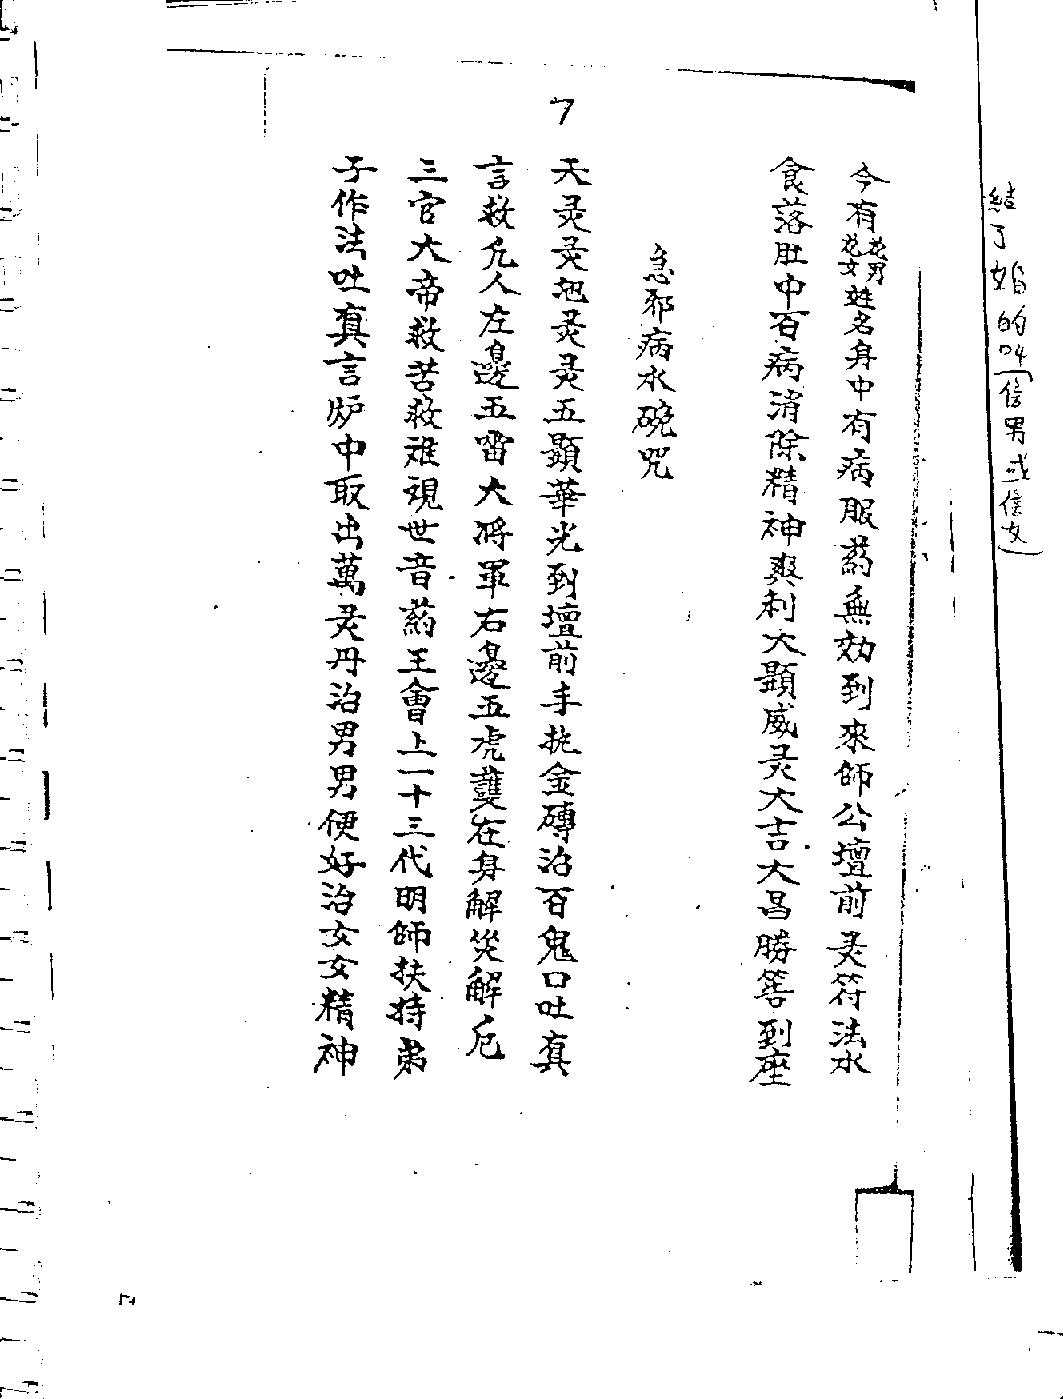 結了婚的叫(信男或信女)
今有花男花女姓名身中有病服葯無効到來師公壇前灵符法水
食落肚中百病消除精神爽利大顕威灵大吉大昌勝筶到座
急邪病水碗咒
7
天灵灵地灵灵五顕華光到壇前手执金磚治百鬼口吐真
言救凡人左邊五雷大将軍右邊五虎䕶在身解災解厄
三官大帝救苦救难覌世音葯王會上一十三代明師扶持弟
子作法吐真言炉中取出萬灵丹治男男便好治女女精神